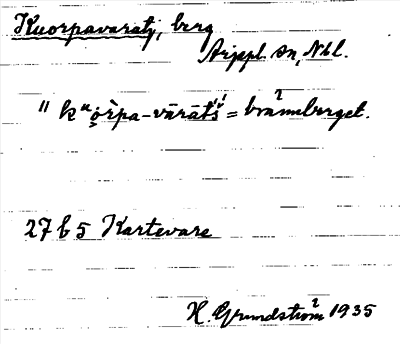 Kuorpavaratj, berg
Arjeppl. sn, Nbl.
" kᵘo̜r̀pa-vārātś = brännberget.
27 b 5 Kartevare
H. Grundström 1935